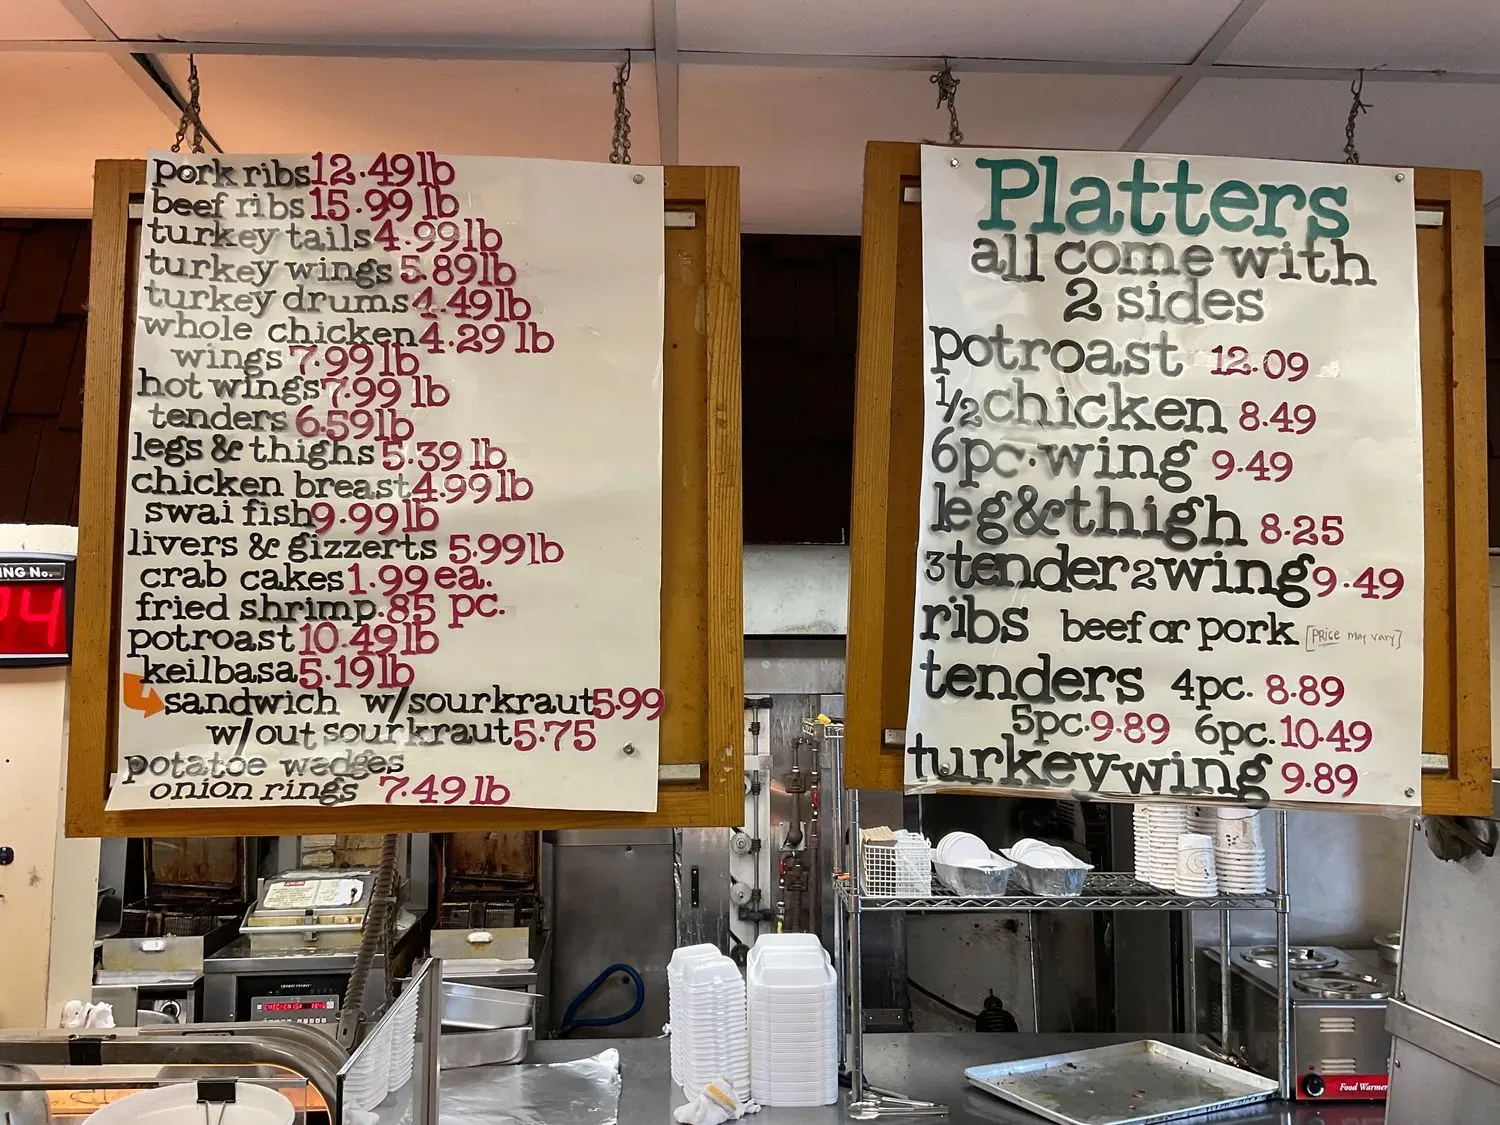 pork ribs 12.49 lb
beef ribs 15.99 lb
turkey tails 4.99 lb
turkey wings 5.89 lb
turkey drums 4.49 lb
whole chicken 4.29 lb
wings 7.99 lb
hot wings 7.99 lb
tenders 6.59 lb
legs & thighs 5.39 lb
chicken breast 4.99 lb
swai fish 9.99 lb
livers & gizzerts 5.99 lb
crab cakes 1.99 ea.
fried shrimp .85 pc.
potroast 10.49 lb
keilbasa 5.19 lb
sandwich w/sourkraut 5.99
w/out sourkraut 5.75
potatoe wedges
onion rings 7.49 lb
Platters
all come with
2 sides
potroast 12.09
1/2 chicken 8.49
6pc. wing 9.49
leg & thigh 8.25
3 tender 2 wing 9.49
ribs beef or pork [PRice may vary]
tenders 4pc. 8.89
5pc. 9.89 6pc. 10.49
turkey wing 9.89
ING No.
4
Food Warmer